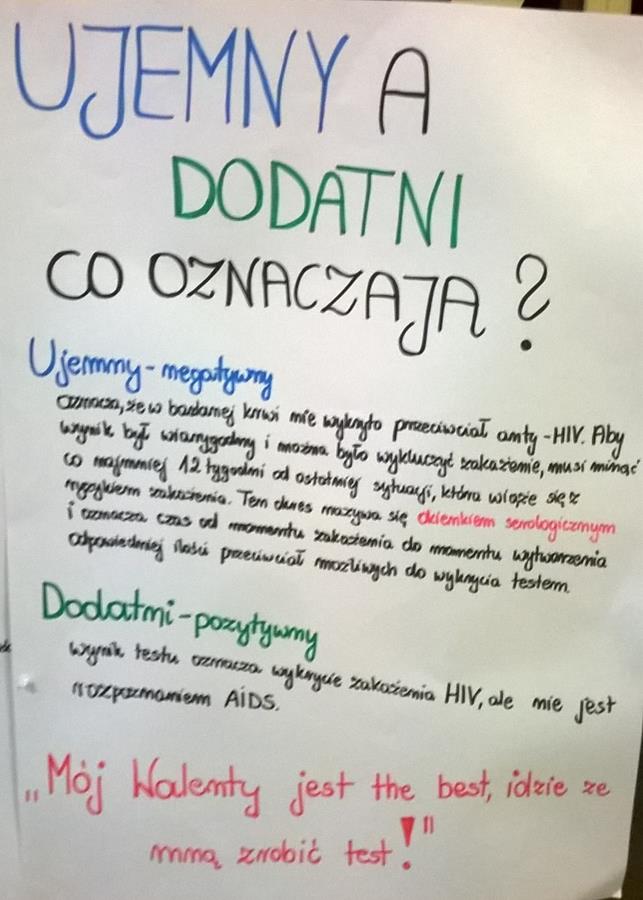 UJEMNY A
DODATNI
CO OZNACZAJĄ?
Ujemny - negatywny
oznacza, że w badanej krwi nie wykryto przeciwciał anty-HIV. Aby
wynik był wiarygodny i można było wykluczyć zakażenie, musi minąć
co najmniej 12 tygodni od ostatniej sytuacji, która wiąże się z
ryzykiem zakażenia. Ten okres nazywa się okienkiem serologicznym
i oznacza czas od momentu zakażenia do momentu wytworzenia
odpowiedniej ilości przeciwciał możliwych do wykrycia testem.
Dodatni - pozytywny
wynik testu oznacza wykrycie zakażenia HIV, ale nie jest
rozpoznaniem AIDS.
„Mój Walenty jest the best, idzie ze
mną zrobić test!"